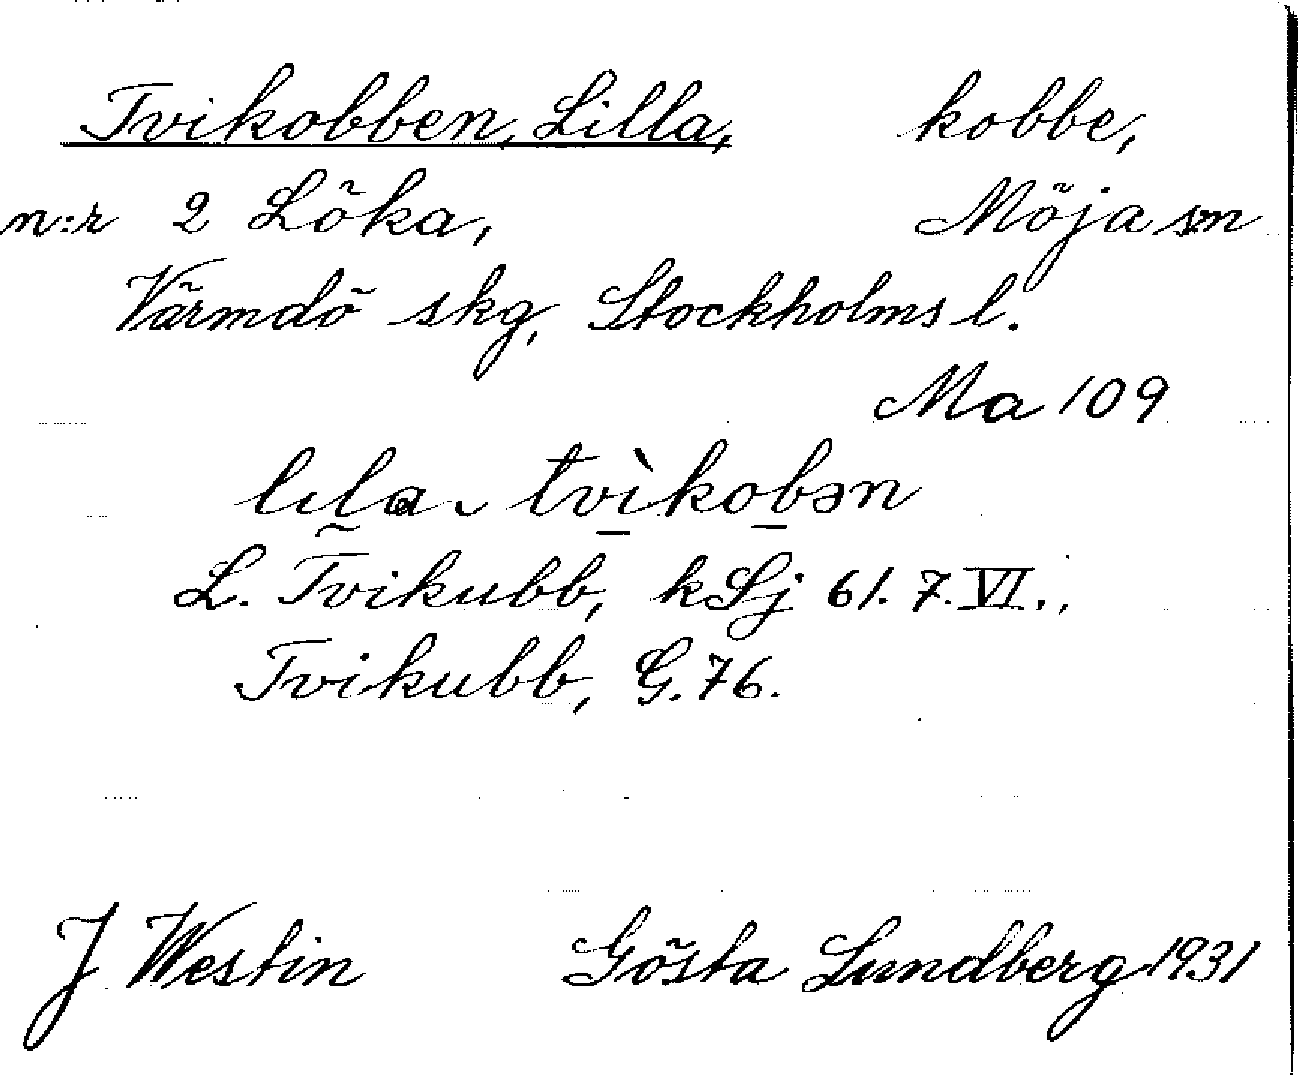 Tvikobben, Lilla, kobbe,
n:r 2 Löka, Möja sn
Värmdö skg, Stockholms l.
Ma 109
lıla tvìkobən
L. Tvikubb, kSj 61. 7. VI.,
Tvikubb, G. 76.
J Westin Gösta Lundberg 1931